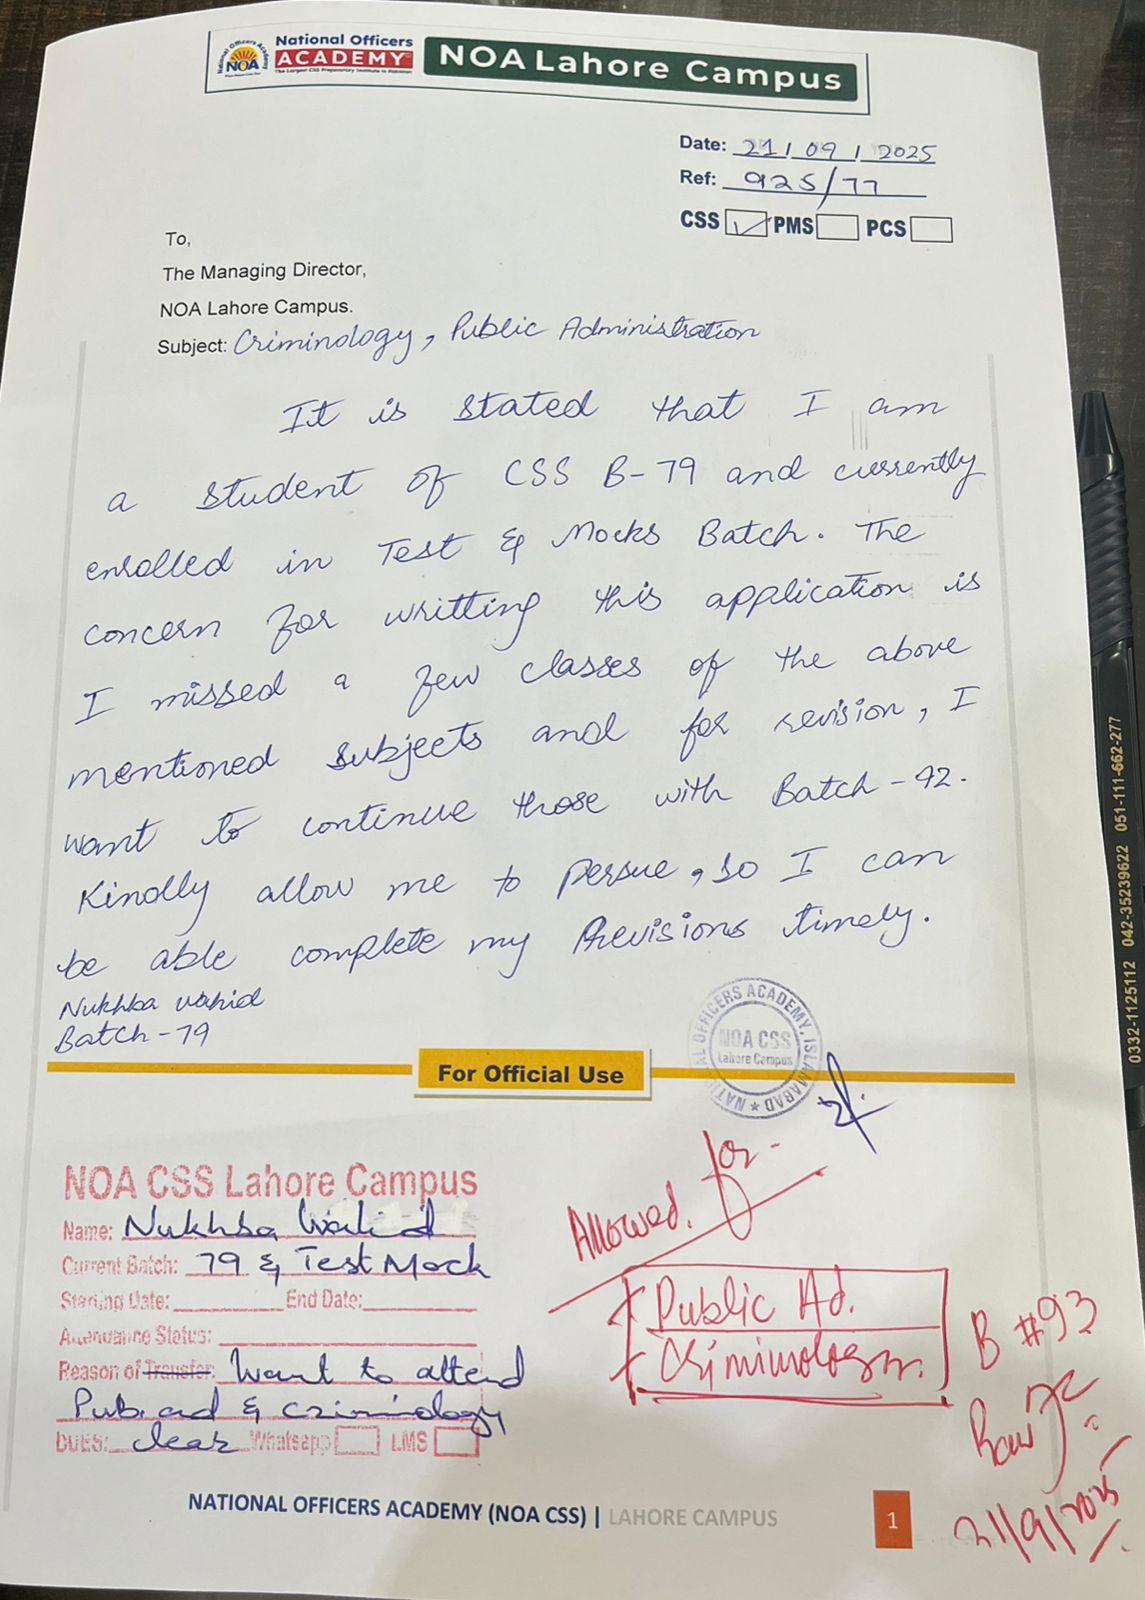 National Officers
ACADEMY
The Largest CSS Preparatory Institute in Pakistan
NOA
NOA Lahore Campus
Date: 21/09/2025
Ref: 925/77
CSS ✓ PMS PCS
To,
The Managing Director,
NOA Lahore Campus.
Subject: Criminology, Public Administration
It is stated that I am
a student of CSS B-79 and currently
enrolled in Test & Mocks Batch. The
concern for writting this application is
I missed a few classes of the above
mentioned subjects and for revision, I
want to continue those with Batch-92.
Kindly allow me to persue, so I can
be able complete my Revisions timely.
Nukhba Wahid
Batch-79
NATIONAL OFFICERS ACADEMY, ISLAMABAD
NOA CSS
Lahore Campus
For Official Use
NOA CSS Lahore Campus
Name: Nukhba Wahid
Current Batch: 79 & Test Mock
Starting Date: End Date:
Attendance Status:
Reason of Transfer: Want to attend
Pub. ad & criminology
DUES: clear Whatsapp LMS
Allowed. for -
Public Ad.
Criminology.
B #93
21/9/2025
NATIONAL OFFICERS ACADEMY (NOA CSS) | LAHORE CAMPUS
1
0332-1125112 042-35239622 051-111-662-277